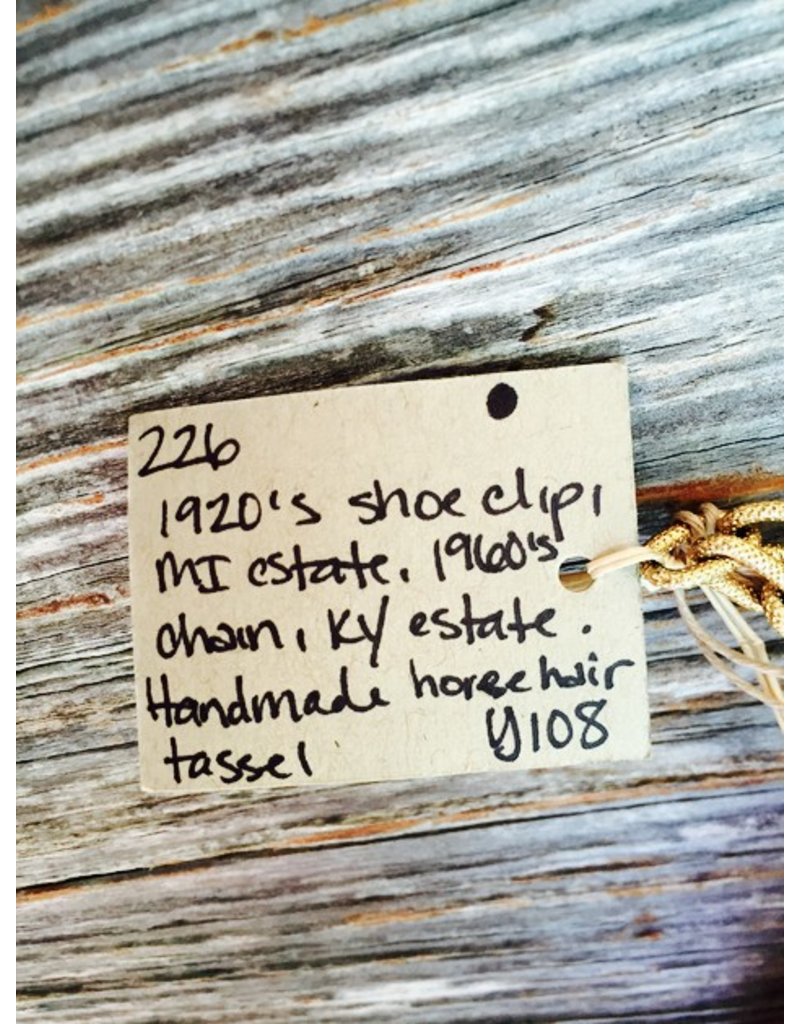 226
1920's shoe clip,
MI estate. 1960's
chain, KY estate.
Handmade horse hair
tassel y108